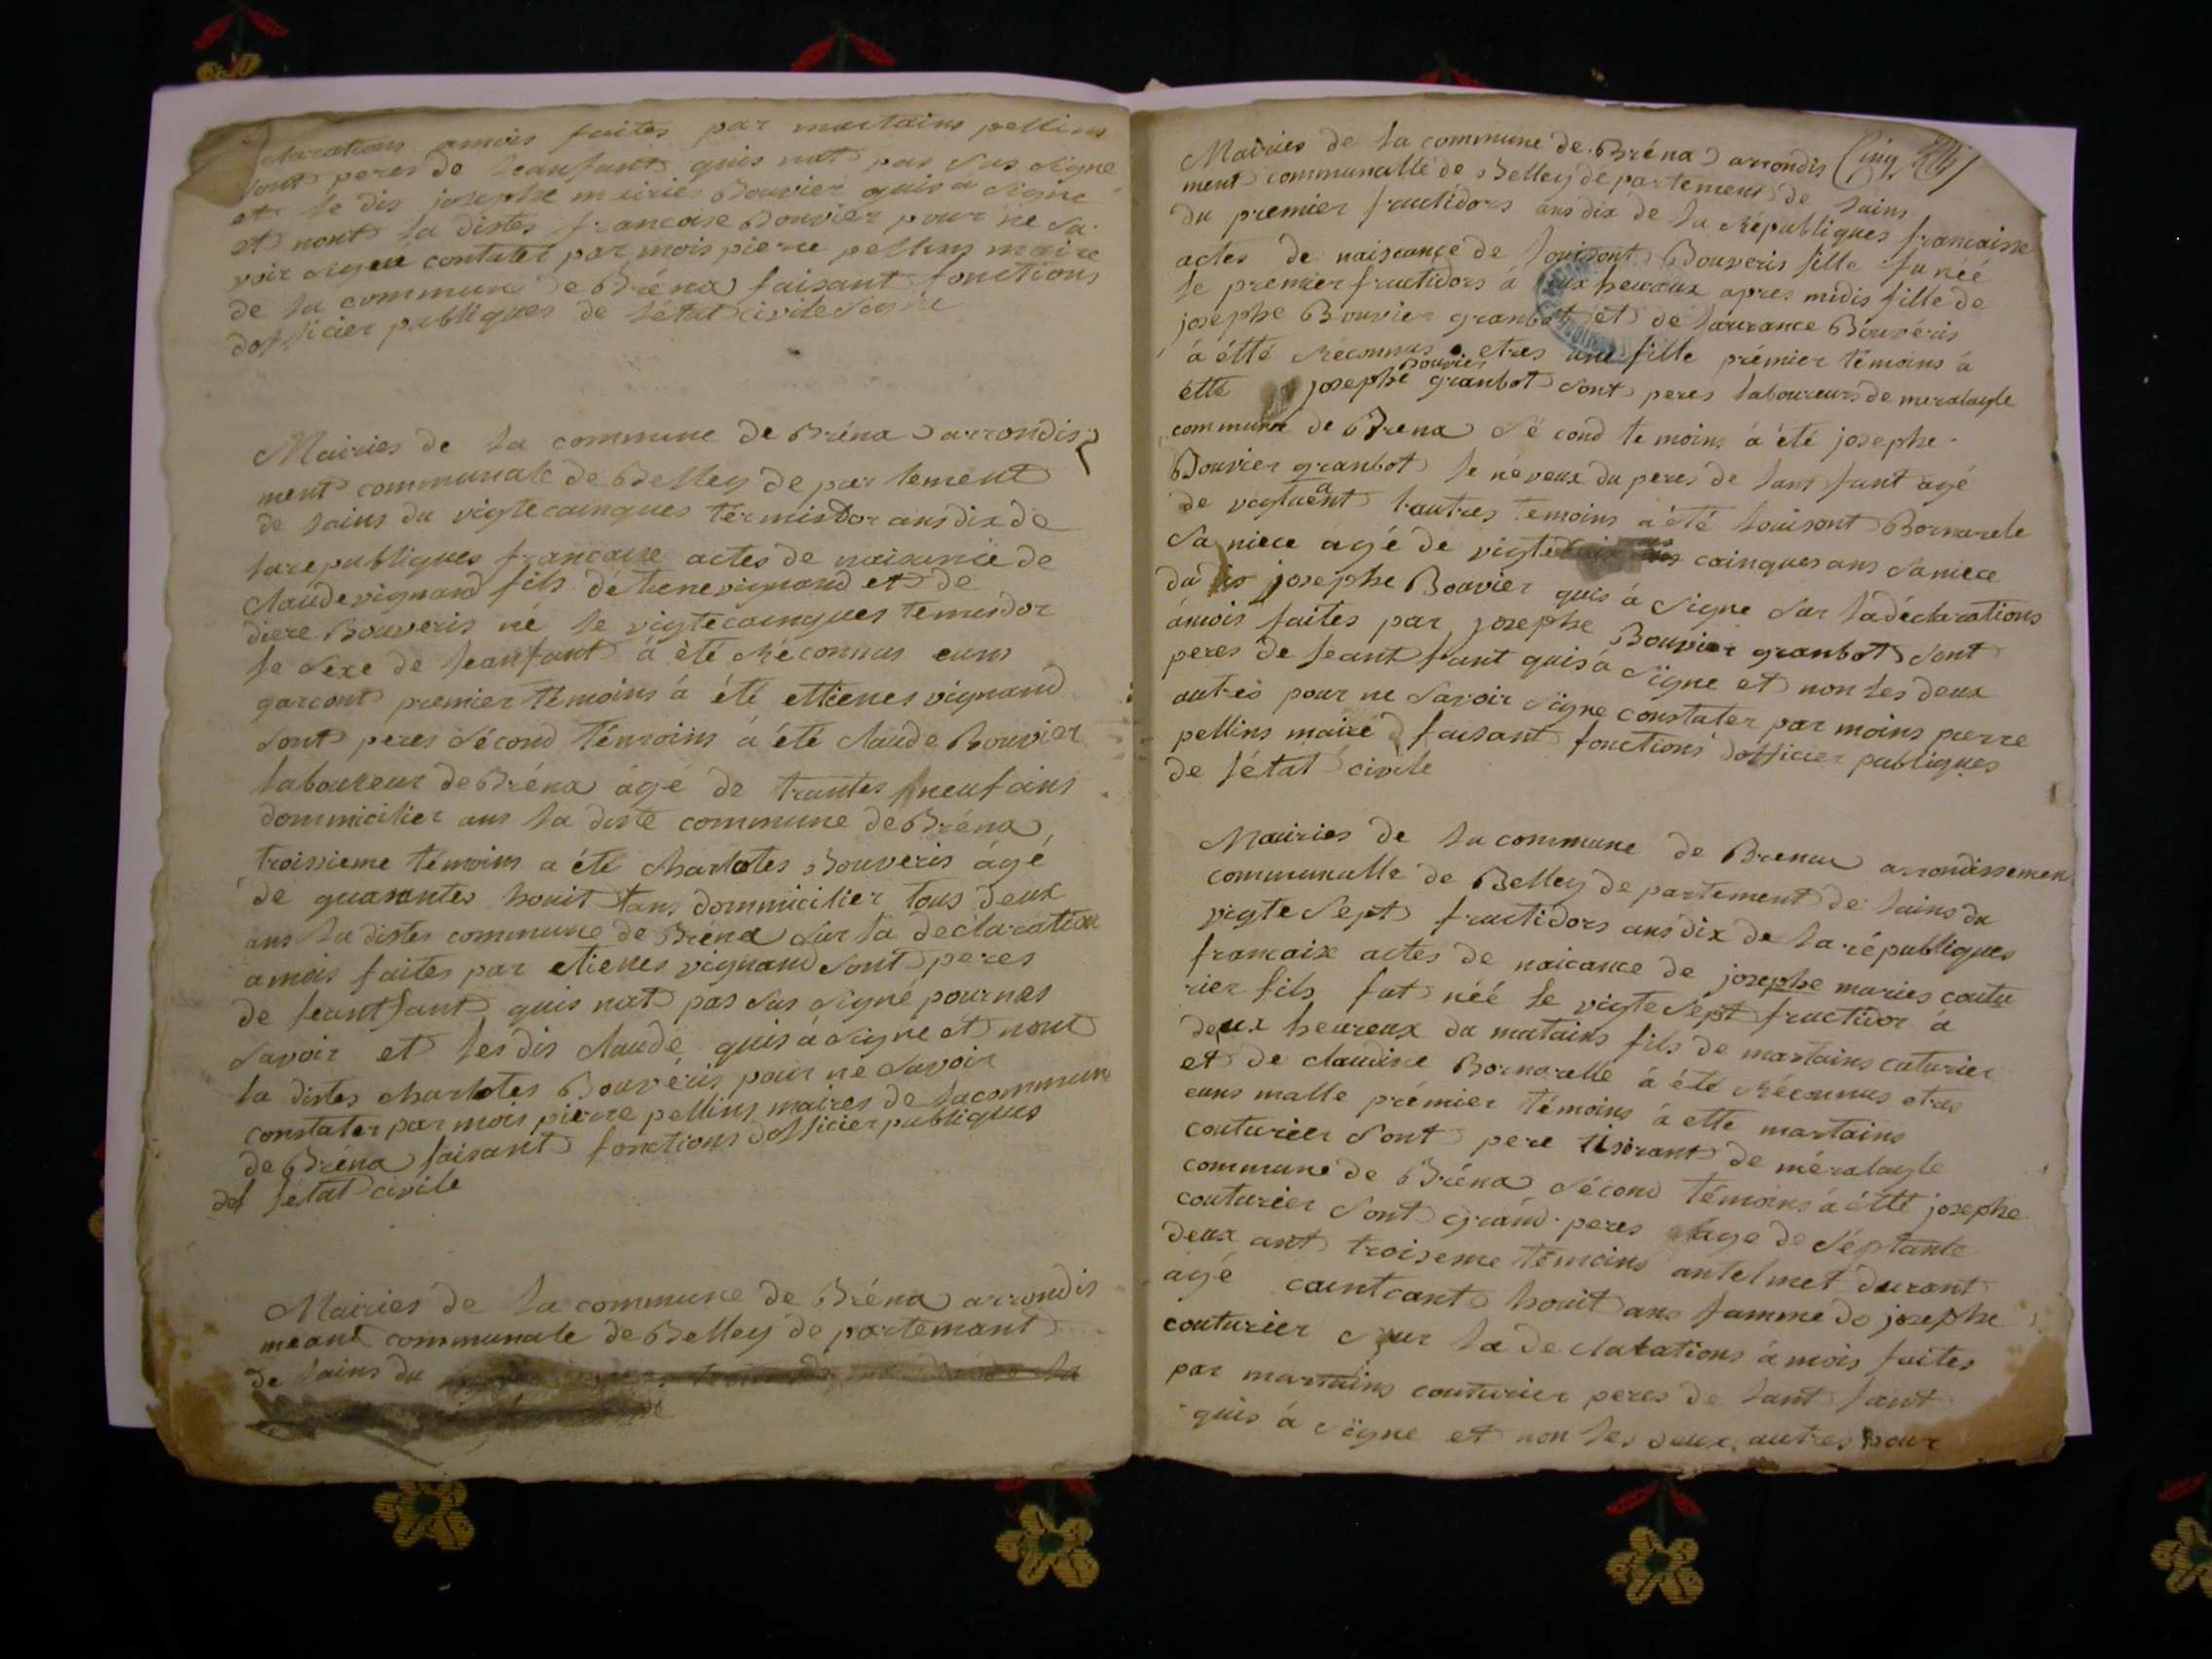 claration amois faites par martains pellins
sont peres de leanfant quis nat pas sus signe
et le dis josephe mairies Bouvier quis a signe
et nont la distes francoise Bouvier pour ne sa
voir signe contater par mois pierre pellins maire
de la commune de Bréna faisant fonctions
dofficier publiques de létat civile signe
Mairies de la commune de Bréna arrondis
ment communale de Belley de par tement
de lains du vigtecainques termisdor ans dix de
la republiques francaise actes de naisance de
claude vignand fils de tiene vignand et de
diere Bouveris né le vigtecainques temisdor
le sexe de leanfant à été réconnus euns
garcont premier témoins à été ettienes vignand
sont peres sécond témoins a été claude Bouvier
laboureur de Bréna agé de trantes neuf ains
dommicilier ans la diste commune de Bréna
troissieme témoins a été charlotes Bouveris àgé
de quarantes houit tans dommicilier tous deux
ans la distes commune de Bréna sur la declaration
amois faites par etienes vignand sont peres
de leantfant quis nat pas sus signé pour nes
savoir et les dis claude quis à signé et nont
la distes charlotes Bouvéris pour ne savoir
constater par mois pierre pellins maires de la commune
de Bréna faisant fonctions dofficier publiques
del létat civile
Mairies de la commune de Bréna arrondis
meant communale de Belley de partemant
de lains du
Mairies de la commune de Bréna arrondis Cinq
ment communallé de Belley de partement de lains
du premier fructidors ans dix de la républiques francaisse
actes de naiscance de louisont Bouveris fille fu néé
le premier fructidors à eux heureux apres midis fille de
josephe Bouvier granbot et de laurance Bouvéris
à étté réconnus etres une fille prémier témoins à
étté josephe Bouvier granbot sont peres laboureurs de meralaygle
commune de Brena sé cond te moins à été josephe
Bouvier granbot le néveux du peres de lans fant agé
de vogtueant lautres temoins à été louisont Bornarele
sa niece agé de vigte cainques ans saniece
du dis josephe Bouvier quis à signe sur la déclarations
àmois faites par josephe Bouvier granbot sont
peres de leant fant quis à signe et non les deux
autres pour ne savoir signe constater par moins pierre
pellins maire faisant fonctions dofficier publiques
de létat civile
Mairies de la commune de Brenaz arrondissemen
communalle de Belley de partement de lains du
vigte sept fructidors ans dix de la républiques
francaise actes de naicance de josephe maries coutu
rier fils fut néé le vigte sépt fructidor à
deux heureux du matains fils de martains caturier
et de claudine Bornaralle à été réconnus etres
euns malle prémier témoins à ette martains
couturier sont pere tiserant de méralaygle
commune de Bréna sécond témoins à étté josephe
couturier sont grand peres lage de séptante
deux ant troiseme témoins antelmet durant
agé caintcant houit ans famme de josephe
couturier sur la de clarations à mois faites
par martains couturier peres de lant fant
quis à signe et non les deux autres pour